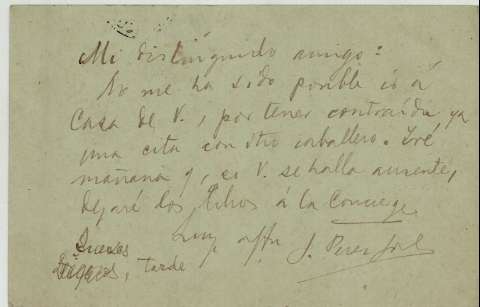 Mi distinguido amigo:
No me ha sido posible ir á
Casa de V., por tener contraída ya
una cita con otro caballero. Iré
mañana y, si V. se halla ausente,
dejaré dos libros á la Concierge.
Suyo affm
Jueves, tarde